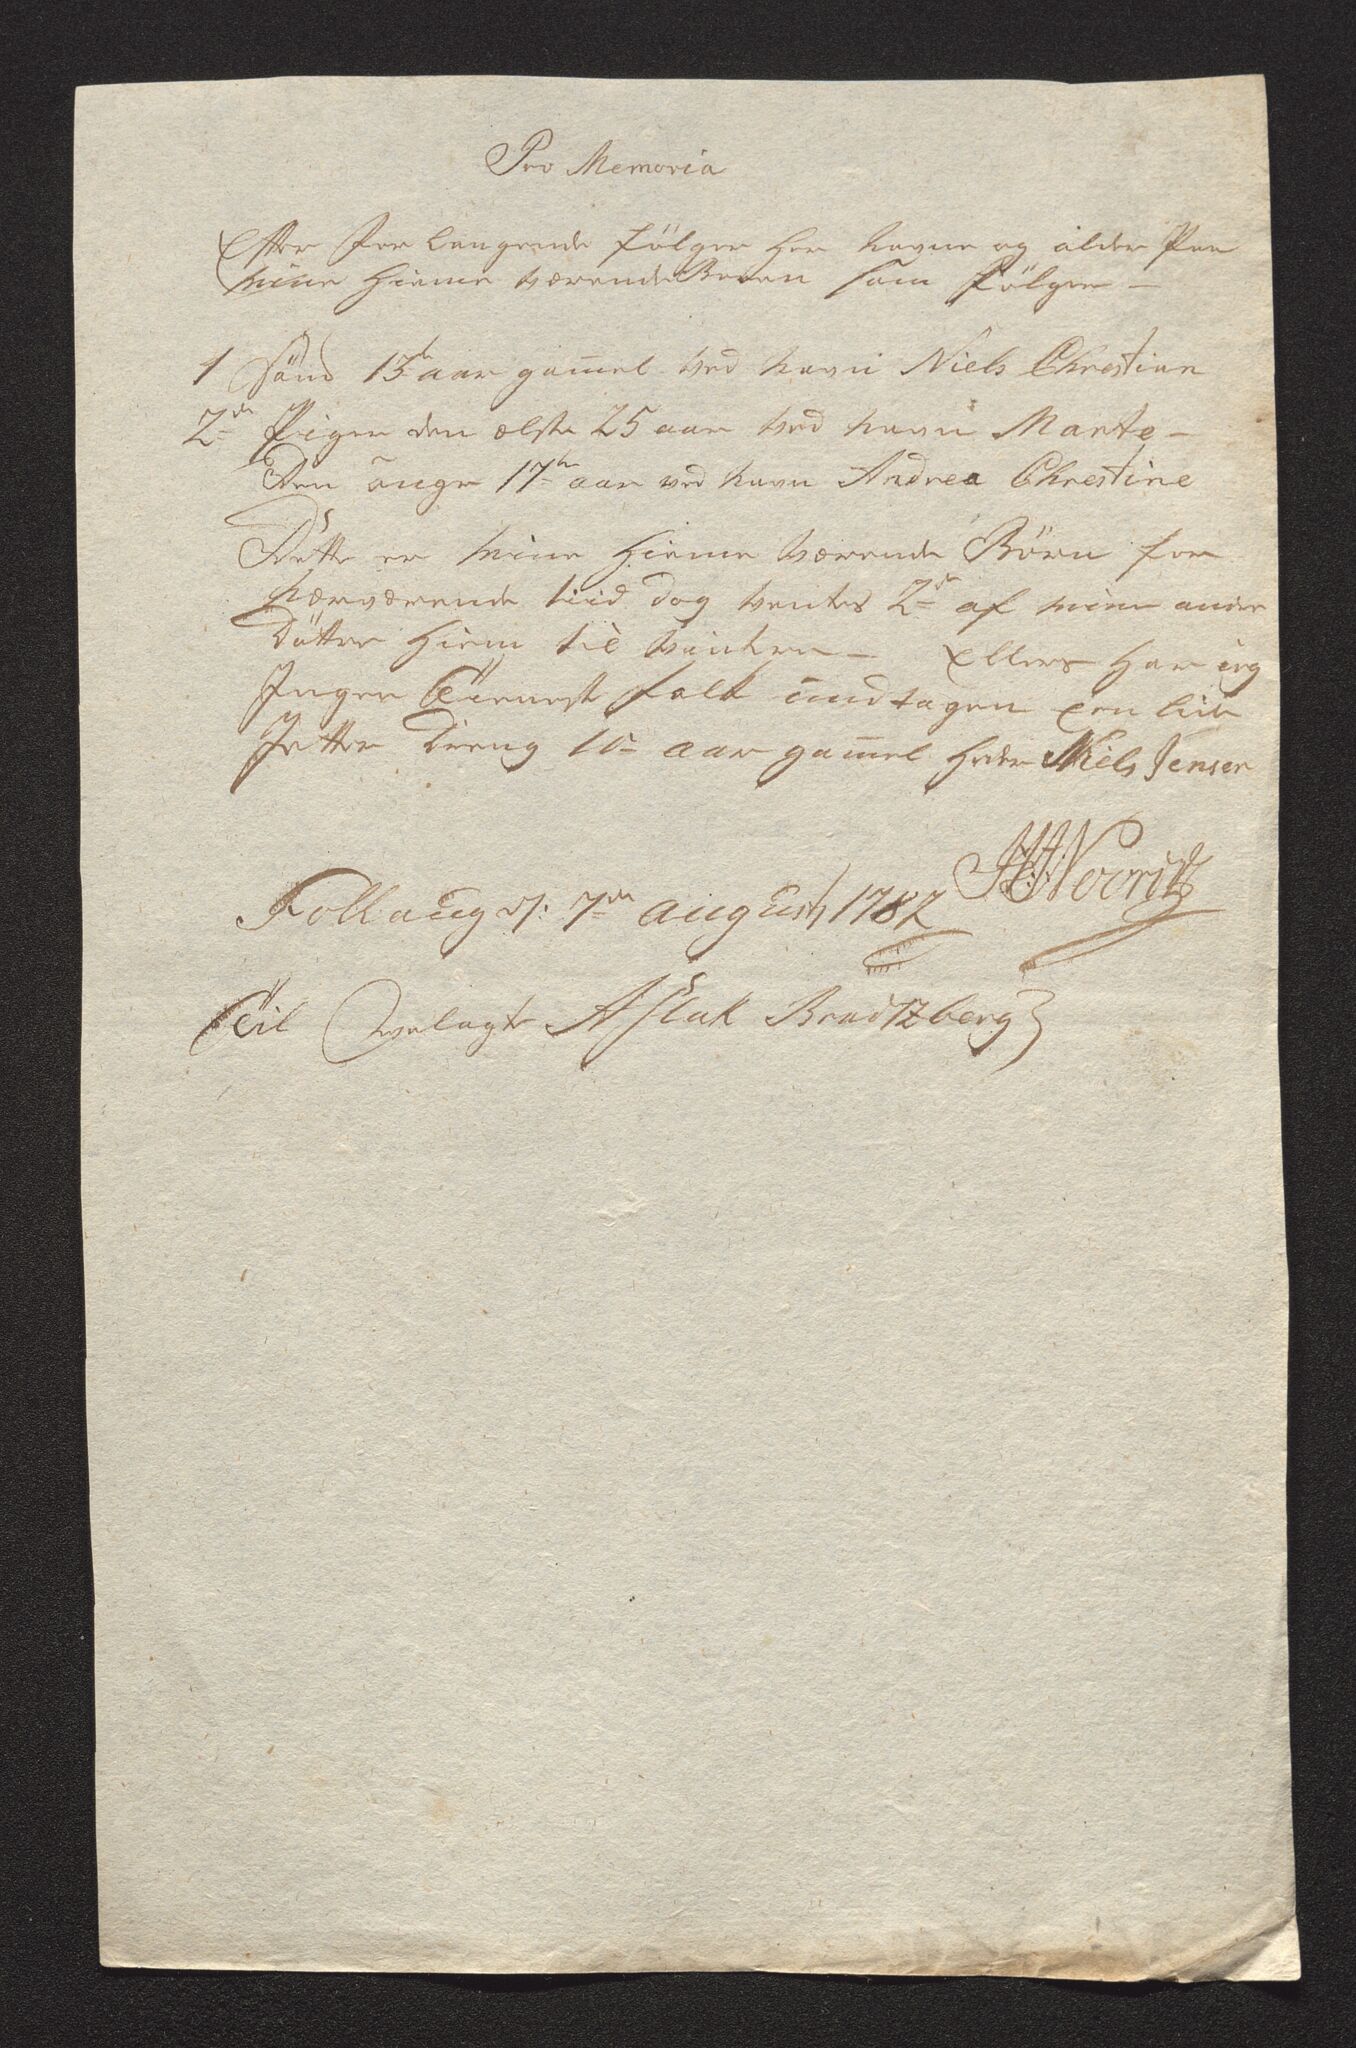 Pro Memoria
Efter Forlangende Fölger her navne og alder Paa
mine hieme værende Bören som Fölger –
1 Sönn 13de aar gam̄el ved navn Niels Chrestian
2de Piger den elste 25 aar ved navn Marte –
Den ÿngre 17de aar ved navn Andrea Chrestine
Dette er mine hieme værende Börn for
nærværende tiid dog ventes 2de af mine andre
Döttre hiem til vintren – Ellers har ieg
Ingen Tienest folk undtagen een lide
Dreng aar gam̄el heder Niels Jensen
Follaug d: 7de augusty 1787
Til velagte Aslak Bradtzberg